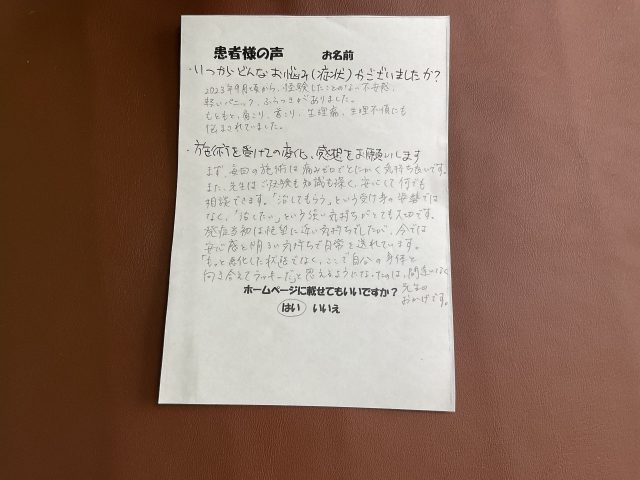 患者様の声 お名前
・いつからどんなお悩み(症状)がございましたか?
2023年9月頃から、経験したことのない不安感、
軽いパニック、ふらつきがありました。
もともと、肩こり、首こり、生理痛、生理不順にも
悩まされていました。
・施術を受けての変化、感想をお願いします
まず、毎回の施術は痛みゼロでとにかく気持ち良いです。
また、先生はご経験も知識も深く、安心して何でも
相談できます。「治してもらう」という受け身の姿勢では
なく、「治したい」という強い気持ちがとても大切です。
発症当初は絶望に近い気持ちでしたが、今では
安心感と明るい気持ちで日常を送れています。
「もっと悪化した状態ではなく、ここで自分の身体と
向き合えてラッキーだ」と思えるようになったのは、間違いなく
先生の
おかげです。
ホームページに載せてもいいですか?
はい いいえ